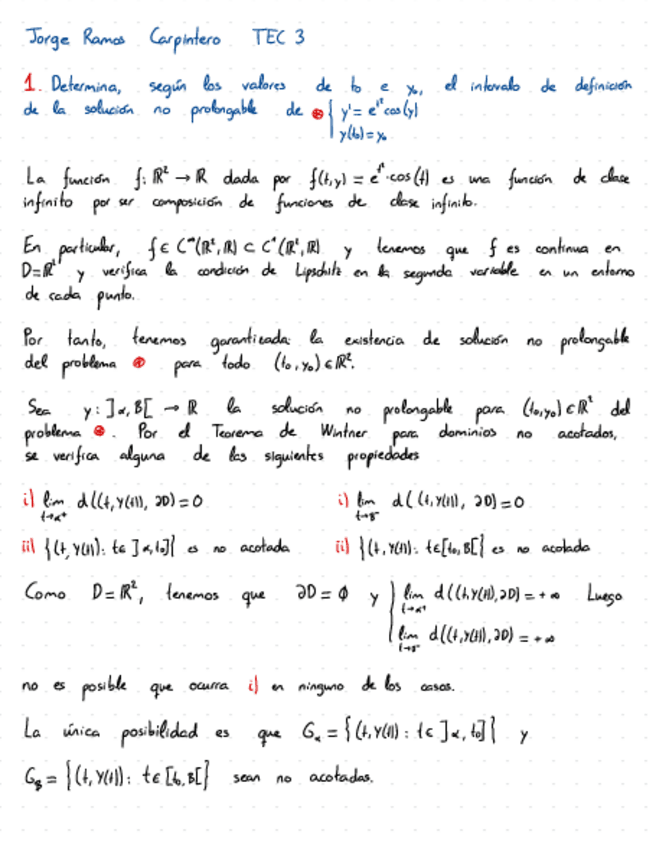 Jorge Ramos Carpintero TEC 3
1. Determina, según los valores de t₀ e y₀, el intervalo de definición
de la solución no prolongable de ⊛ { y' = e^{t²} cos(y)
y(t₀) = y₀
La función f: ℝ² → ℝ dada por f(t,y) = e^{t²}·cos(t) es una función de clase
infinito por ser composición de funciones de clase infinito.
En particular, f ∈ C^∞(ℝ², ℝ) ⊂ C¹(ℝ², ℝ) y tenemos que f es continua en
D = ℝ² y verifica la condición de Lipschitz en la segunda variable en un entorno
de cada punto.
Por tanto, tenemos garantizada la existencia de solución no prolongable
del problema ⊛ para todo (t₀, y₀) ∈ ℝ².
Sea y: ]α, β[ → ℝ la solución no prolongable para (t₀, y₀) ∈ ℝ² del
problema ⊛. Por el Teorema de Wintner para dominios no acotados,
se verifica alguna de las siguientes propiedades
i) lim_{t→α⁺} d((t, y(t)), ∂D) = 0 i) lim_{t→β⁻} d((t, y(t)), ∂D) = 0
ii) {(t, y(t)): t ∈ ]α, t₀]} es no acotada ii) {(t, y(t)): t ∈ [t₀, β[} es no acotada
Como D = ℝ², tenemos que ∂D = ∅ y { lim_{t→α⁺} d((t, y(t)), ∂D) = +∞ Luego
lim_{t→β⁻} d((t, y(t)), ∂D) = +∞
no es posible que ocurra i) en ninguno de los casos.
La única posibilidad es que G_α = {(t, y(t)): t ∈ ]α, t₀]} y
G_β = {(t, y(t)): t ∈ [t₀, β[} sean no acotadas.